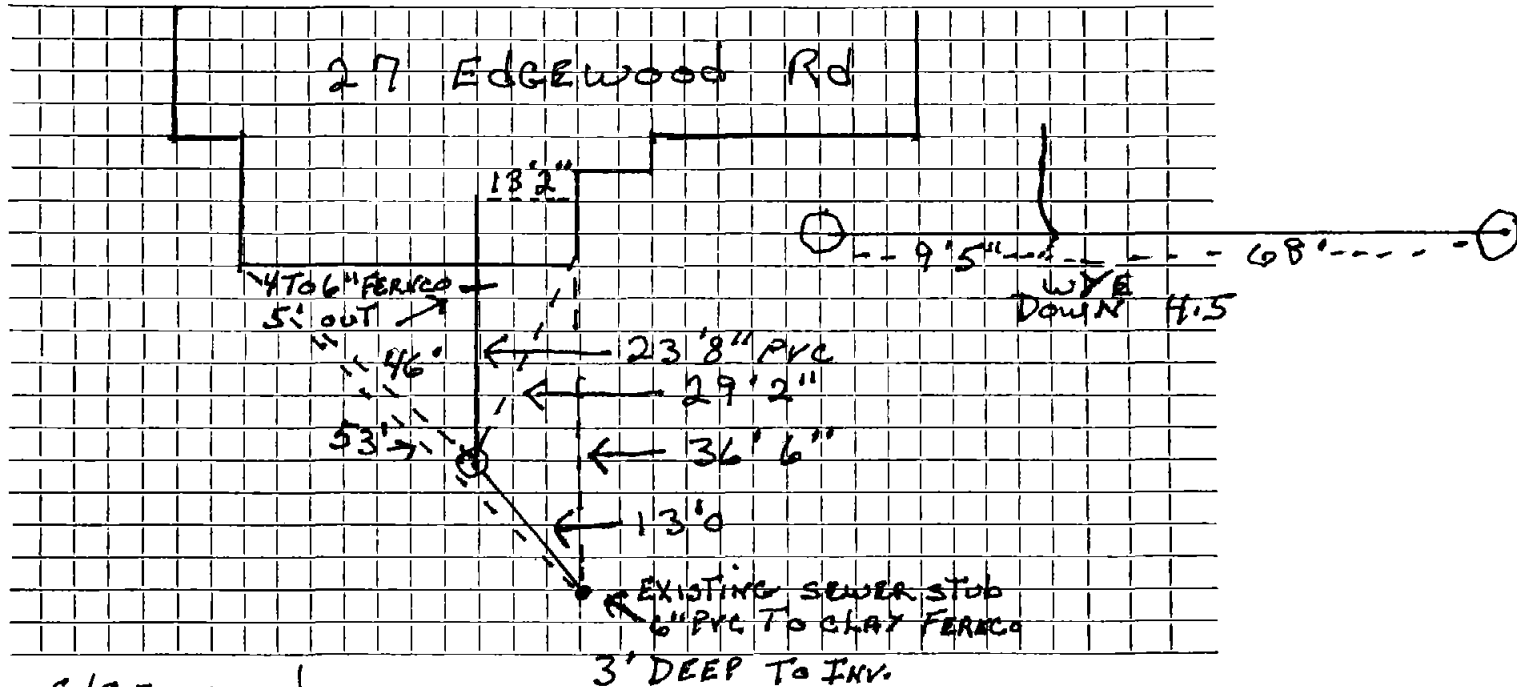 27 EDGEWOOD Rd
13'2"
9'5"
68'
WYE
DOWN 4.5
4 TO 6" FERNCO
5' OUT
46'
23'8" PVC
29'2"
53'
36'6"
13'0
EXISTING SEWER STUB
6" PVC TO CLAY FERNCO
3' DEEP TO INV.